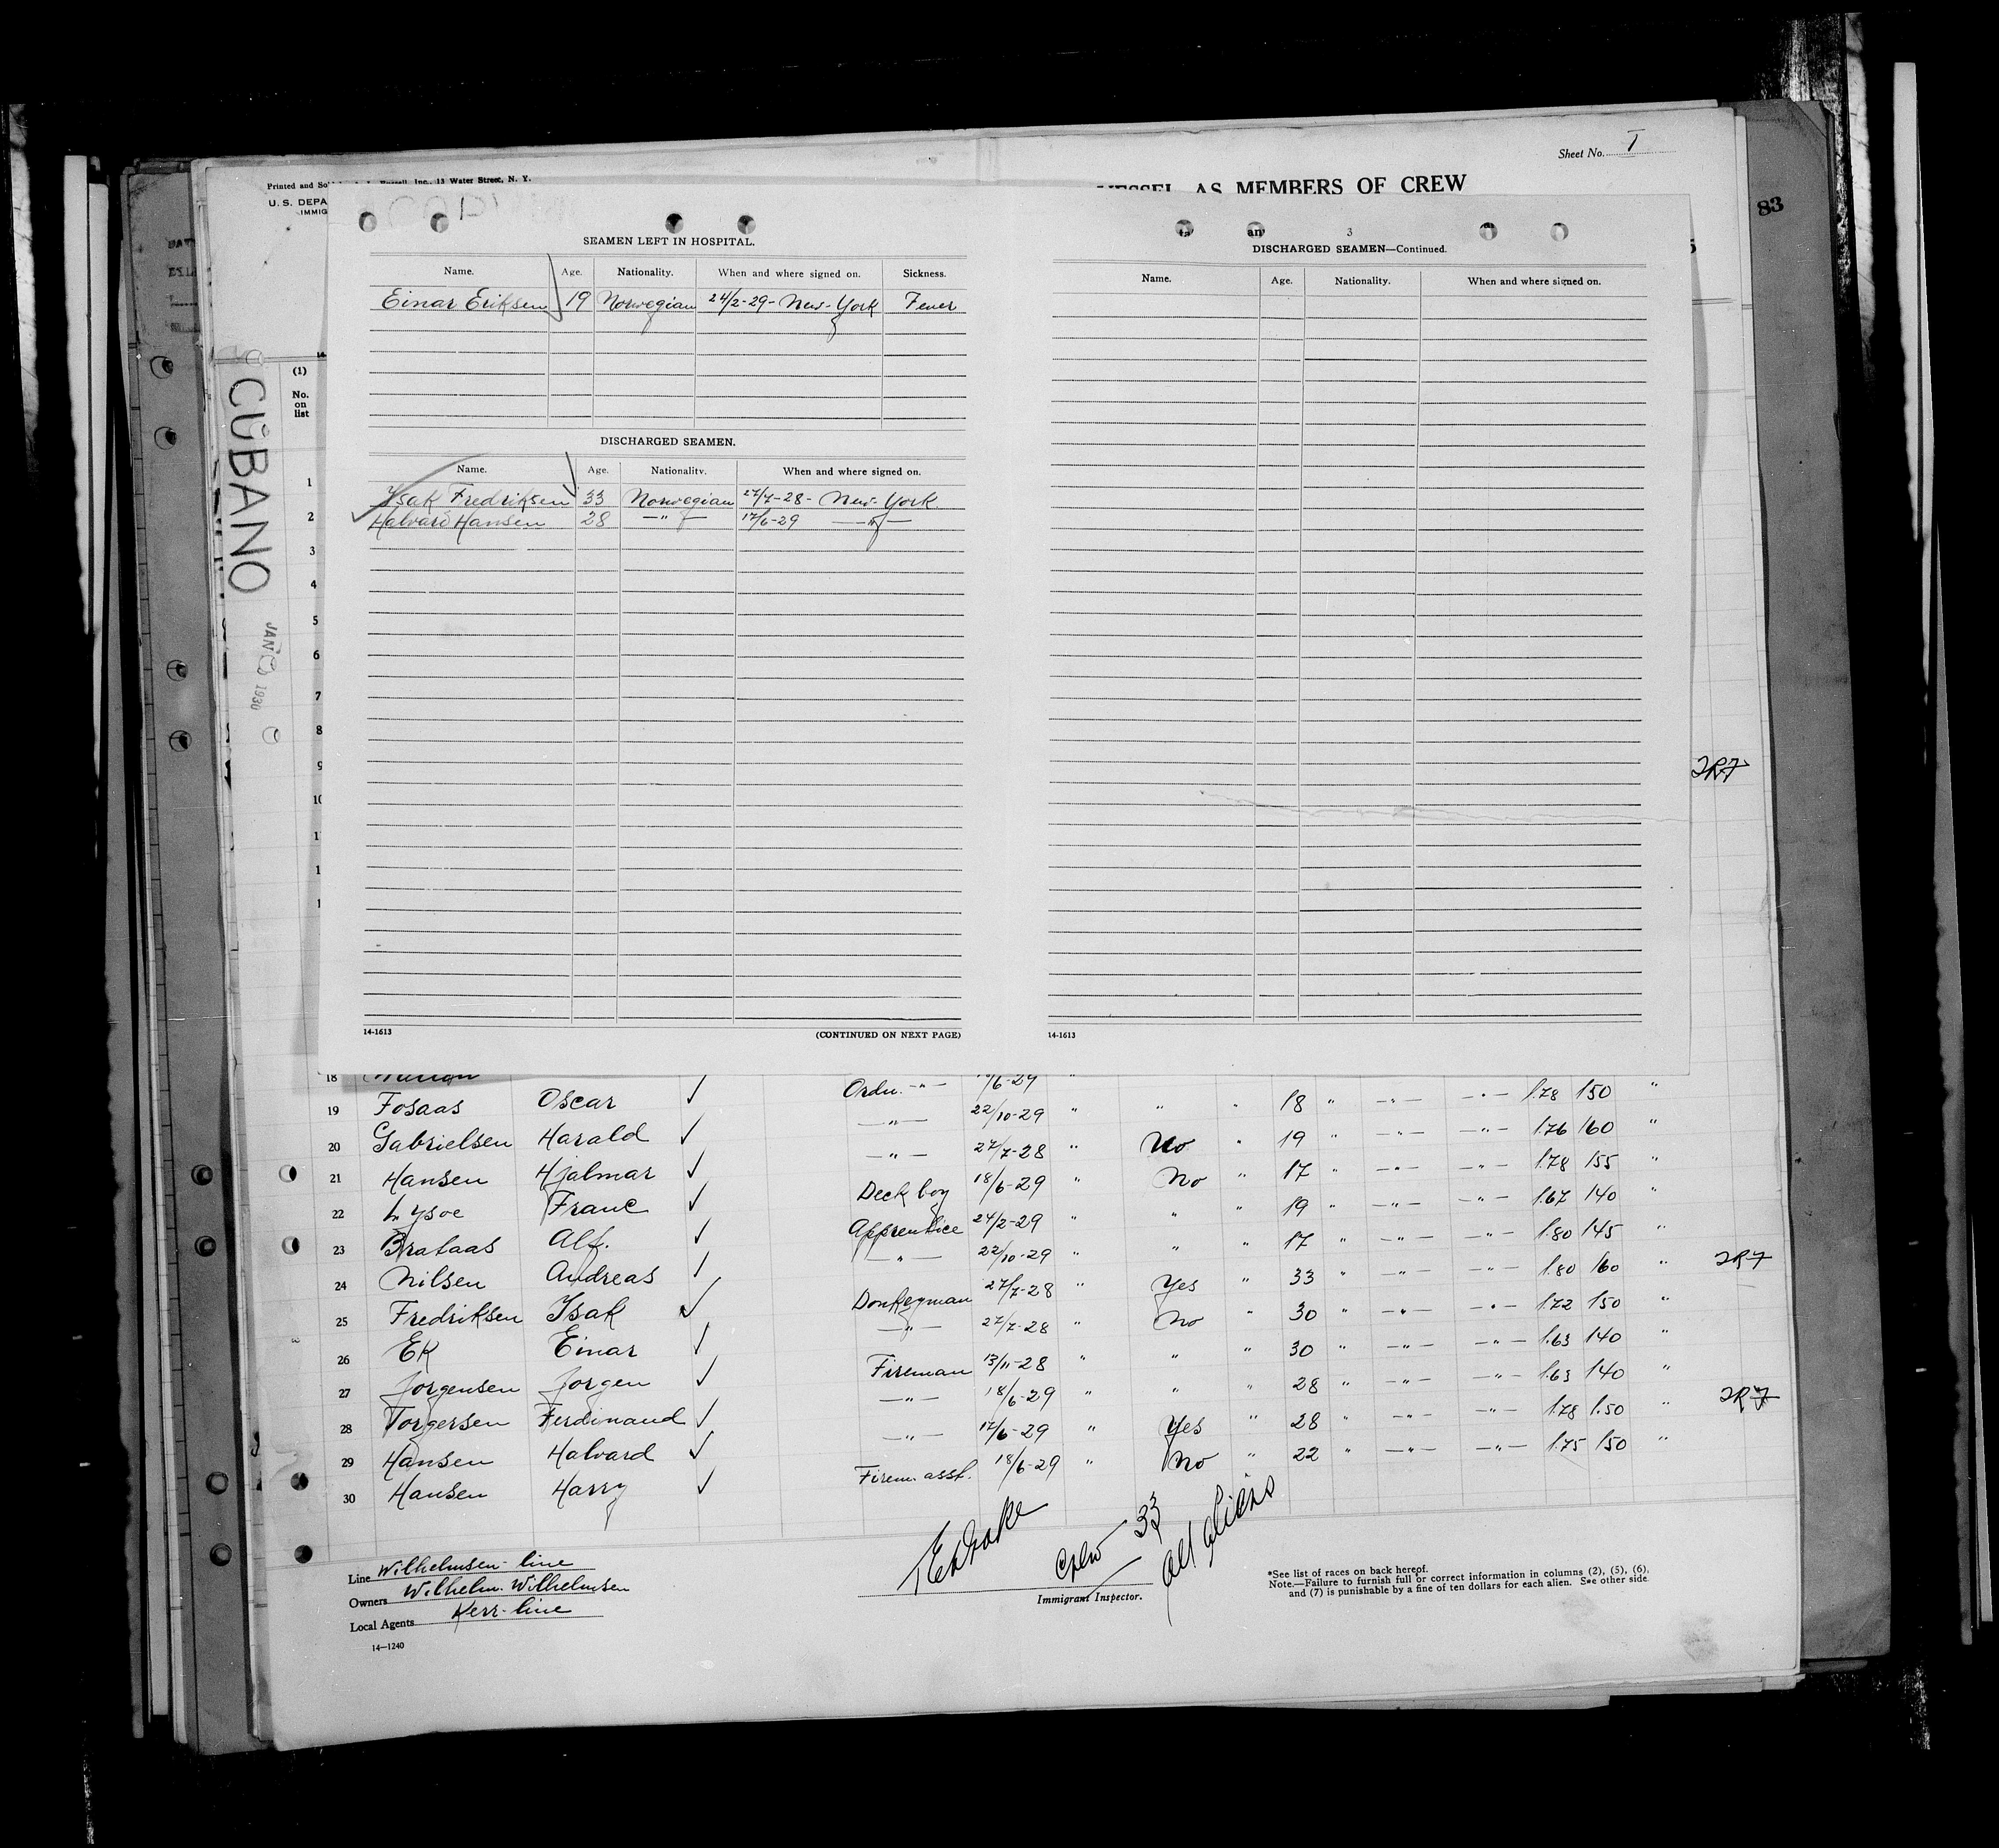 Sheet No. 1
Printed and So
Inc., 13 Water Street, N. Y.
U. S. DEPA
IMMIG
VESSEL AS MEMBERS OF CREW
83
CUBANO
JAN 1930
(1)
No. on list
SEAMEN LEFT IN HOSPITAL.
Name. Age. Nationality. When and where signed on. Sickness.
Einar Eriksen 19 Norwegian 24/2-29- New-York Fever
DISCHARGED SEAMEN.
Name. Age. Nationality. When and where signed on.
Isak Fredriksen 33 Norwegian 27/7-28- New-York.
Halvard Hansen 28 —"— 17/6-29 —"—
14-1613 (CONTINUED ON NEXT PAGE)
3
DISCHARGED SEAMEN—Continued.
Name. Age. Nationality. When and where signed on.
14-1613
1
2
3
4
5
6
7
8
9
10
18 Ordn. —"— /6-29 "
19 Fosaas Oscar —"— 22/10-29 " " " 18 " —"— —"— 1.78 150 "
20 Gabrielsen Harald —"— 27/7-28 " No " 19 " —"— —"— 1.76 160 "
21 Hansen Hjalmar Deck boy 18/6-29 " No " 17 " —"— —"— 1.78 155 "
22 Lysoe Franc Apprentice 24/2-29 " " " 19 " —"— —"— 1.67 140 "
23 Brataas Alf. —"— 22/10-29 " " " 17 " —"— —"— 1.80 145 "
24 Nilsen Andreas Donkeyman 27/7-28 " Yes " 33 " —"— —"— 1.80 160 "
25 Fredriksen Isak —"— 27/7-28 " No " 30 " —"— —"— 1.72 150 "
26 Ek Einar Fireman 13/11-28 " " " 30 " —"— —"— 1.63 140 "
27 Jorgensen Jorgen —"— 18/6-29 " " " 28 " —"— —"— 1.63 140 "
28 Torgersen Ferdinand —"— 17/6-29 " Yes " 28 " —"— —"— 1.78 150 "
29 Hansen Halvard Firem. asst. 18/6-29 " No " 22 " —"— —"— 1.75 150 "
30 Hansen Harry
Line Wilhelmsen-line
Owners Wilhelm. Wilhelmsen
Local Agents Kerr-line
14—1240
Crew 33
all aliens
Immigrant Inspector.
*See list of races on back hereof.
Note.—Failure to furnish full or correct information in columns (2), (5), (6),
and (7) is punishable by a fine of ten dollars for each alien. See other side.